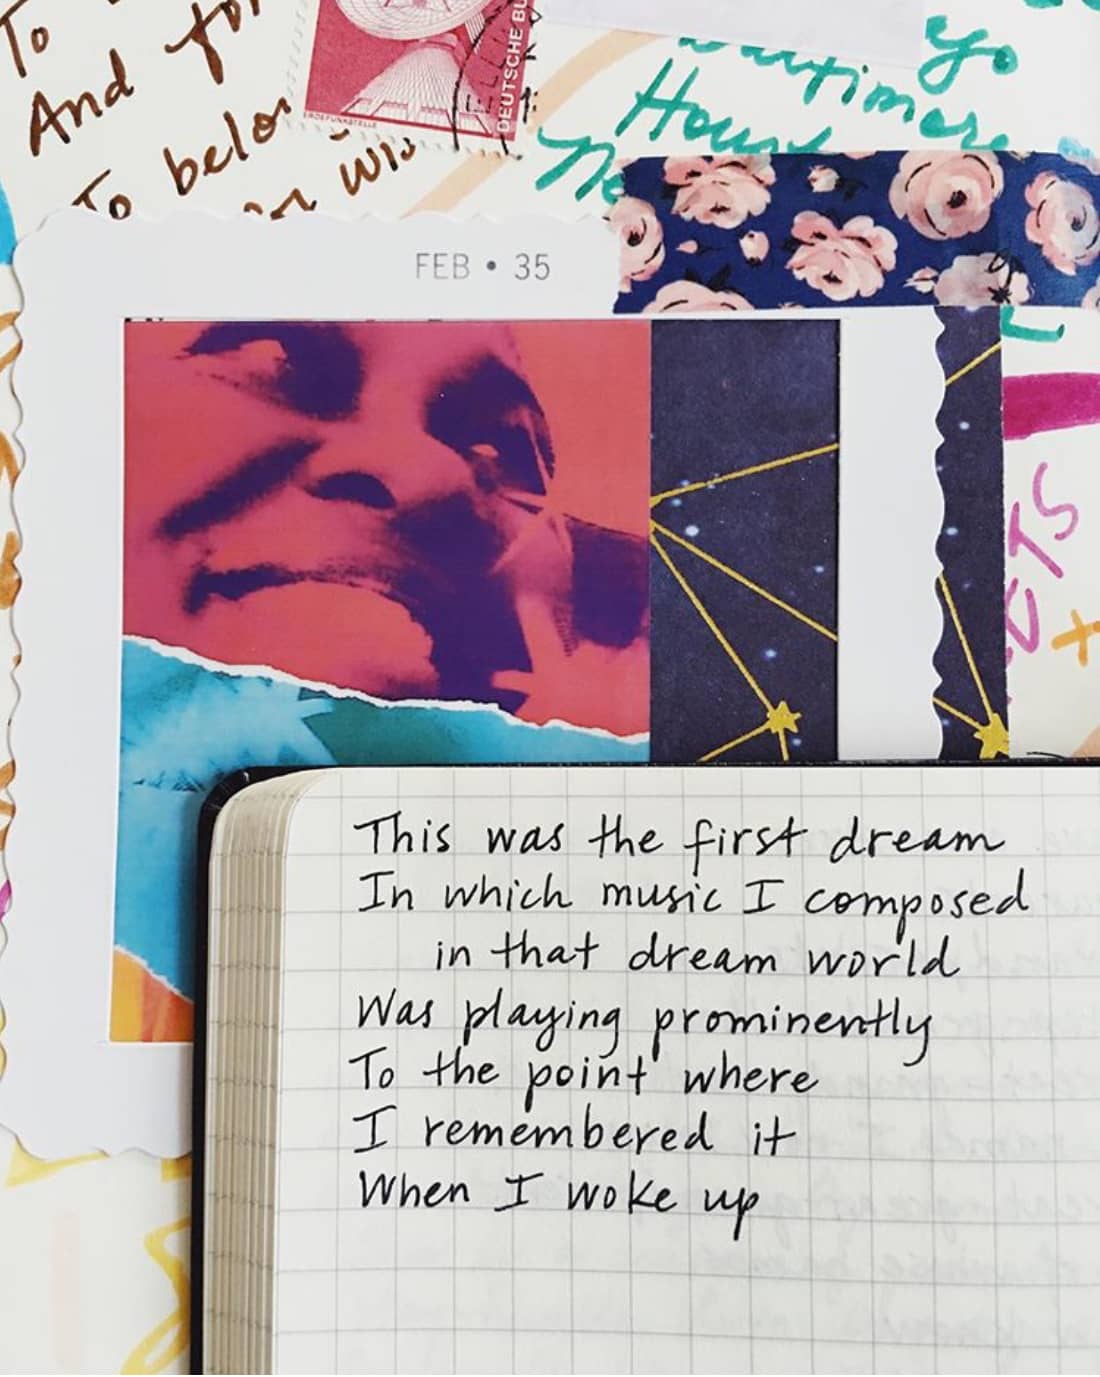 To
And for
To belon
DEUTSCHE BU
ERDEFUNKSTELLE
go
Baltimore
FEB • 35
This was the first dream
In which music I composed
in that dream world
Was playing prominently
To the point where
I remembered it
When I woke up